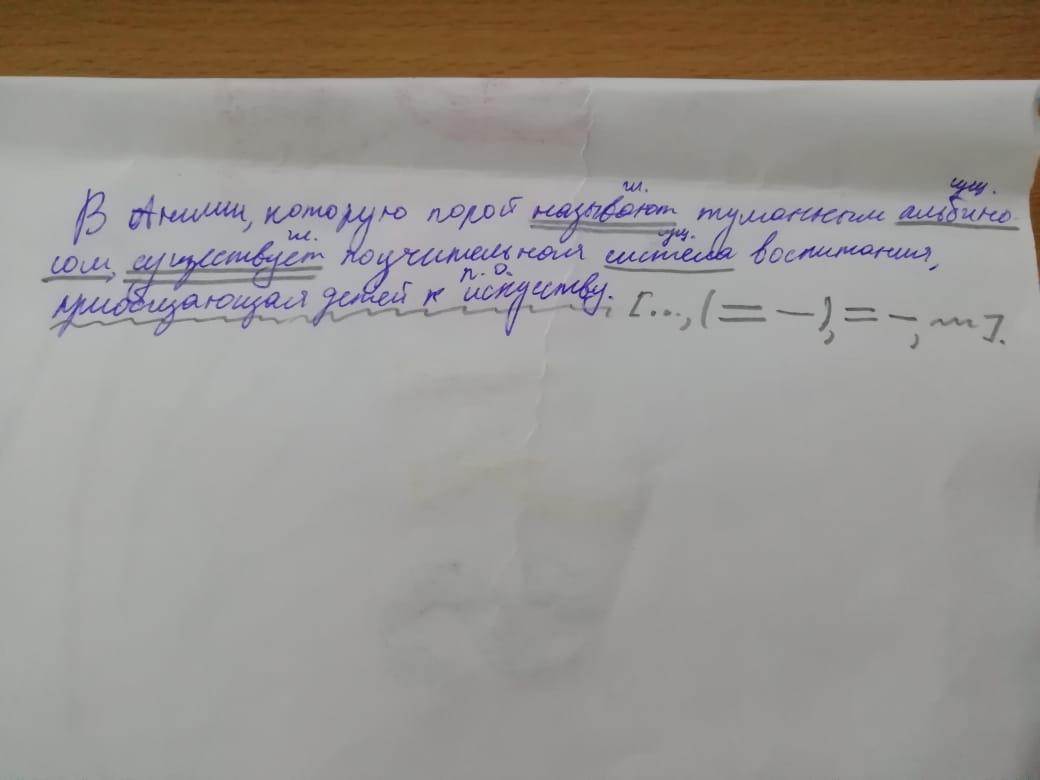 гл. сущ.
В Англии, которую порой называют туманным альбино-
гл. сущ.
сом, существует поучительном система воспитания,
п. о.
приобщающая детей к искуству. [..., (= –), = –, ~~~].